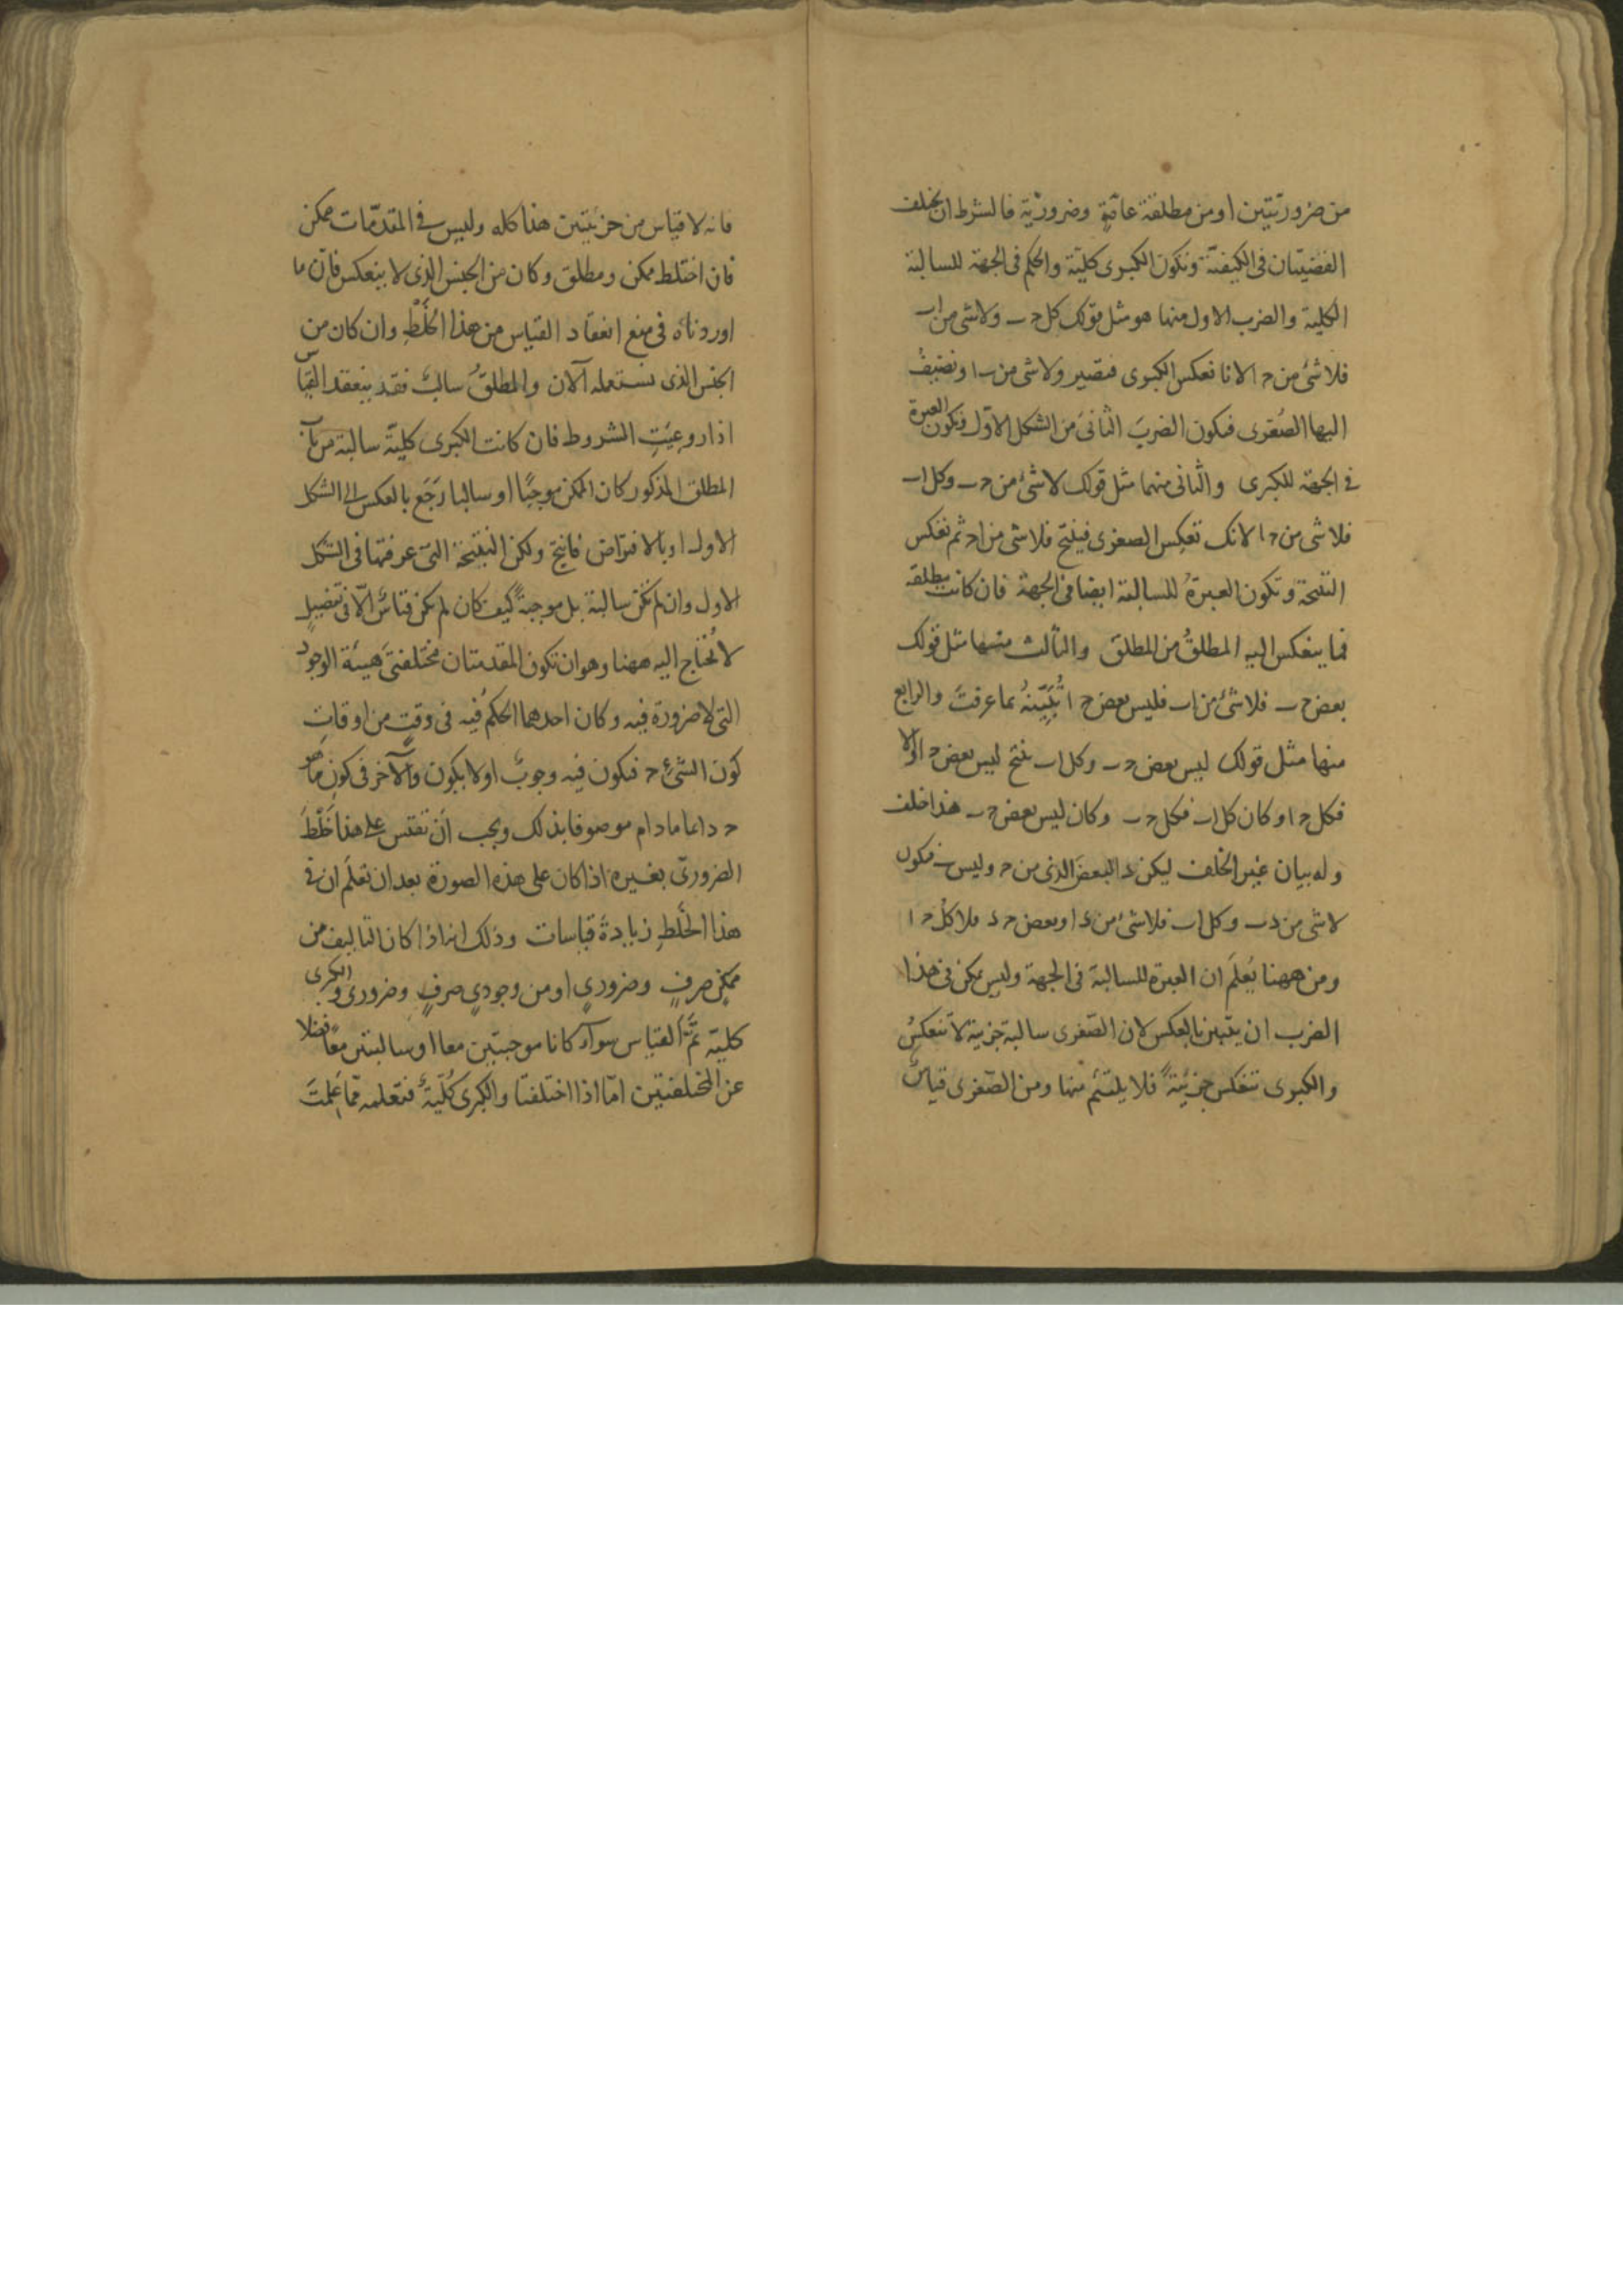 من ضروريتين او من مطلقة عامّةٍ وضروريّة فالشرط ان يختلف
القضيتان فى الكيفيّة وتكون الكبرى كليّة والحكم فى الجهة للسالبة
الكلية والضرب الاول منها هو مثل قولك كل حـ ب ولا شى من ا ب
فلا شئ من حـ ا لانا نعكس الكبرى فتصير ولا شى من ب ا ونضيفُ
اليها الصُغرى فيكون الضربَ الثانىَ من الشكل الاوّل وتكون العبرة
فى الجهة للكبرى والثانى منهما مثل قولك لا شئ من حـ ب وكل ا ب
فلا شى من حـ ا لانك تعكس الصغرى فينتج فلا شى من ا حـ ثم تعكس
النتيجة وتكون العبرةُ للسالبة ايضا فى الجهة فان كانت مطلقة
فما ينعكس اليه المطلقُ من المطلق والثالث منها مثل قولك
بعض حـ ب فلا شئ من ا ب فليس بعض حـ ا تُبَيّنهُ بما عرفتَ والرابع
منها مثل قولك ليس بعض حـ ب وكل ا ب ينتج ليس بعض حـ ا والا
فكل حـ ا وكان كل ا ب فكل حـ ب وكان ليس بعض حـ ب هذا خلف
وله بيان غير الخلف ليكن د البعضَ الذى من حـ وليس ب فيكون
لا شى من د ب وكل ا ب فلا شئ من د ا وبعض حـ د فلا كلّ حـ ا
ومن ههنا يُعلَم ان العبرة للسالبة فى الجهة وليس يمكن فى هذا
الضرب ان يتبين بالعكس لان الصّغرى سالبة جزيية لا تنعكسُ
والكبرى تنعكس جزئيّةً فلا يلتئم منها ومن الصّغرى قياسٌ
فانه لا قياس من جزئيتين هذا كله وليس فى المقدّمات ممكن
فان اختلط ممكن ومطلق وكان من الجنس الذى لا ينعكس فانّ ما
اوردناه فى منع انعقاد القياس من هذا الخَلْطِ وان كان من
الجنس الذى نستعمله الآن والمطلقُ سالبٌ فقد ينعقد القياسُ
اذا روعِيَتِ الشروط فان كانت الكبرى كليّة سالبة من باب
المطلق المذكور كان الممكن موجبًا او سالبا رَجَع بالعكس الى الشكل
الاول او بالافتراض فانتج ولكن النتيجة التى عرفتها فى الشكل
الاول وان لم تكن سالبة بل موجبةً كيف كان لم يكن قياسٌ الّا فى تفصيلٍ
لا نُحتاج اليه ههنا وهو ان تكون المقدمتان مختلفتى هيئة الوجود
التى لا ضرورة فيه وكان احدهما الحكمُ فيه فى وقتٍ من اوقاتِ
كون الشئِ حـ فيكون فيه وجوبٌ او لا يكون والآخر فى كون ما هو
حـ دائما مادام موصوفا بذلك ويجب انْ تقيس على هذا خَلْطَ
الضرورىّ بغيره اذا كان على هذه الصورة بعد ان تعلَم ان فى
هذا الخَلطِ زيادةَ قياسات وذلك انه اذا كان التاليف من
ممكنٍ صرفٍ وضرورىٍ او من وجودىٍ صرفٍ وضرورى والكبرى
كلية تمَّ القياس سواءٌ كانا موجبتين معا او سالبتين معًا فضلا
عن المختلفتين امّا اذا اختلفتا والكبرى كُليّةٌ فتعلمه ممّا عَلمتَ